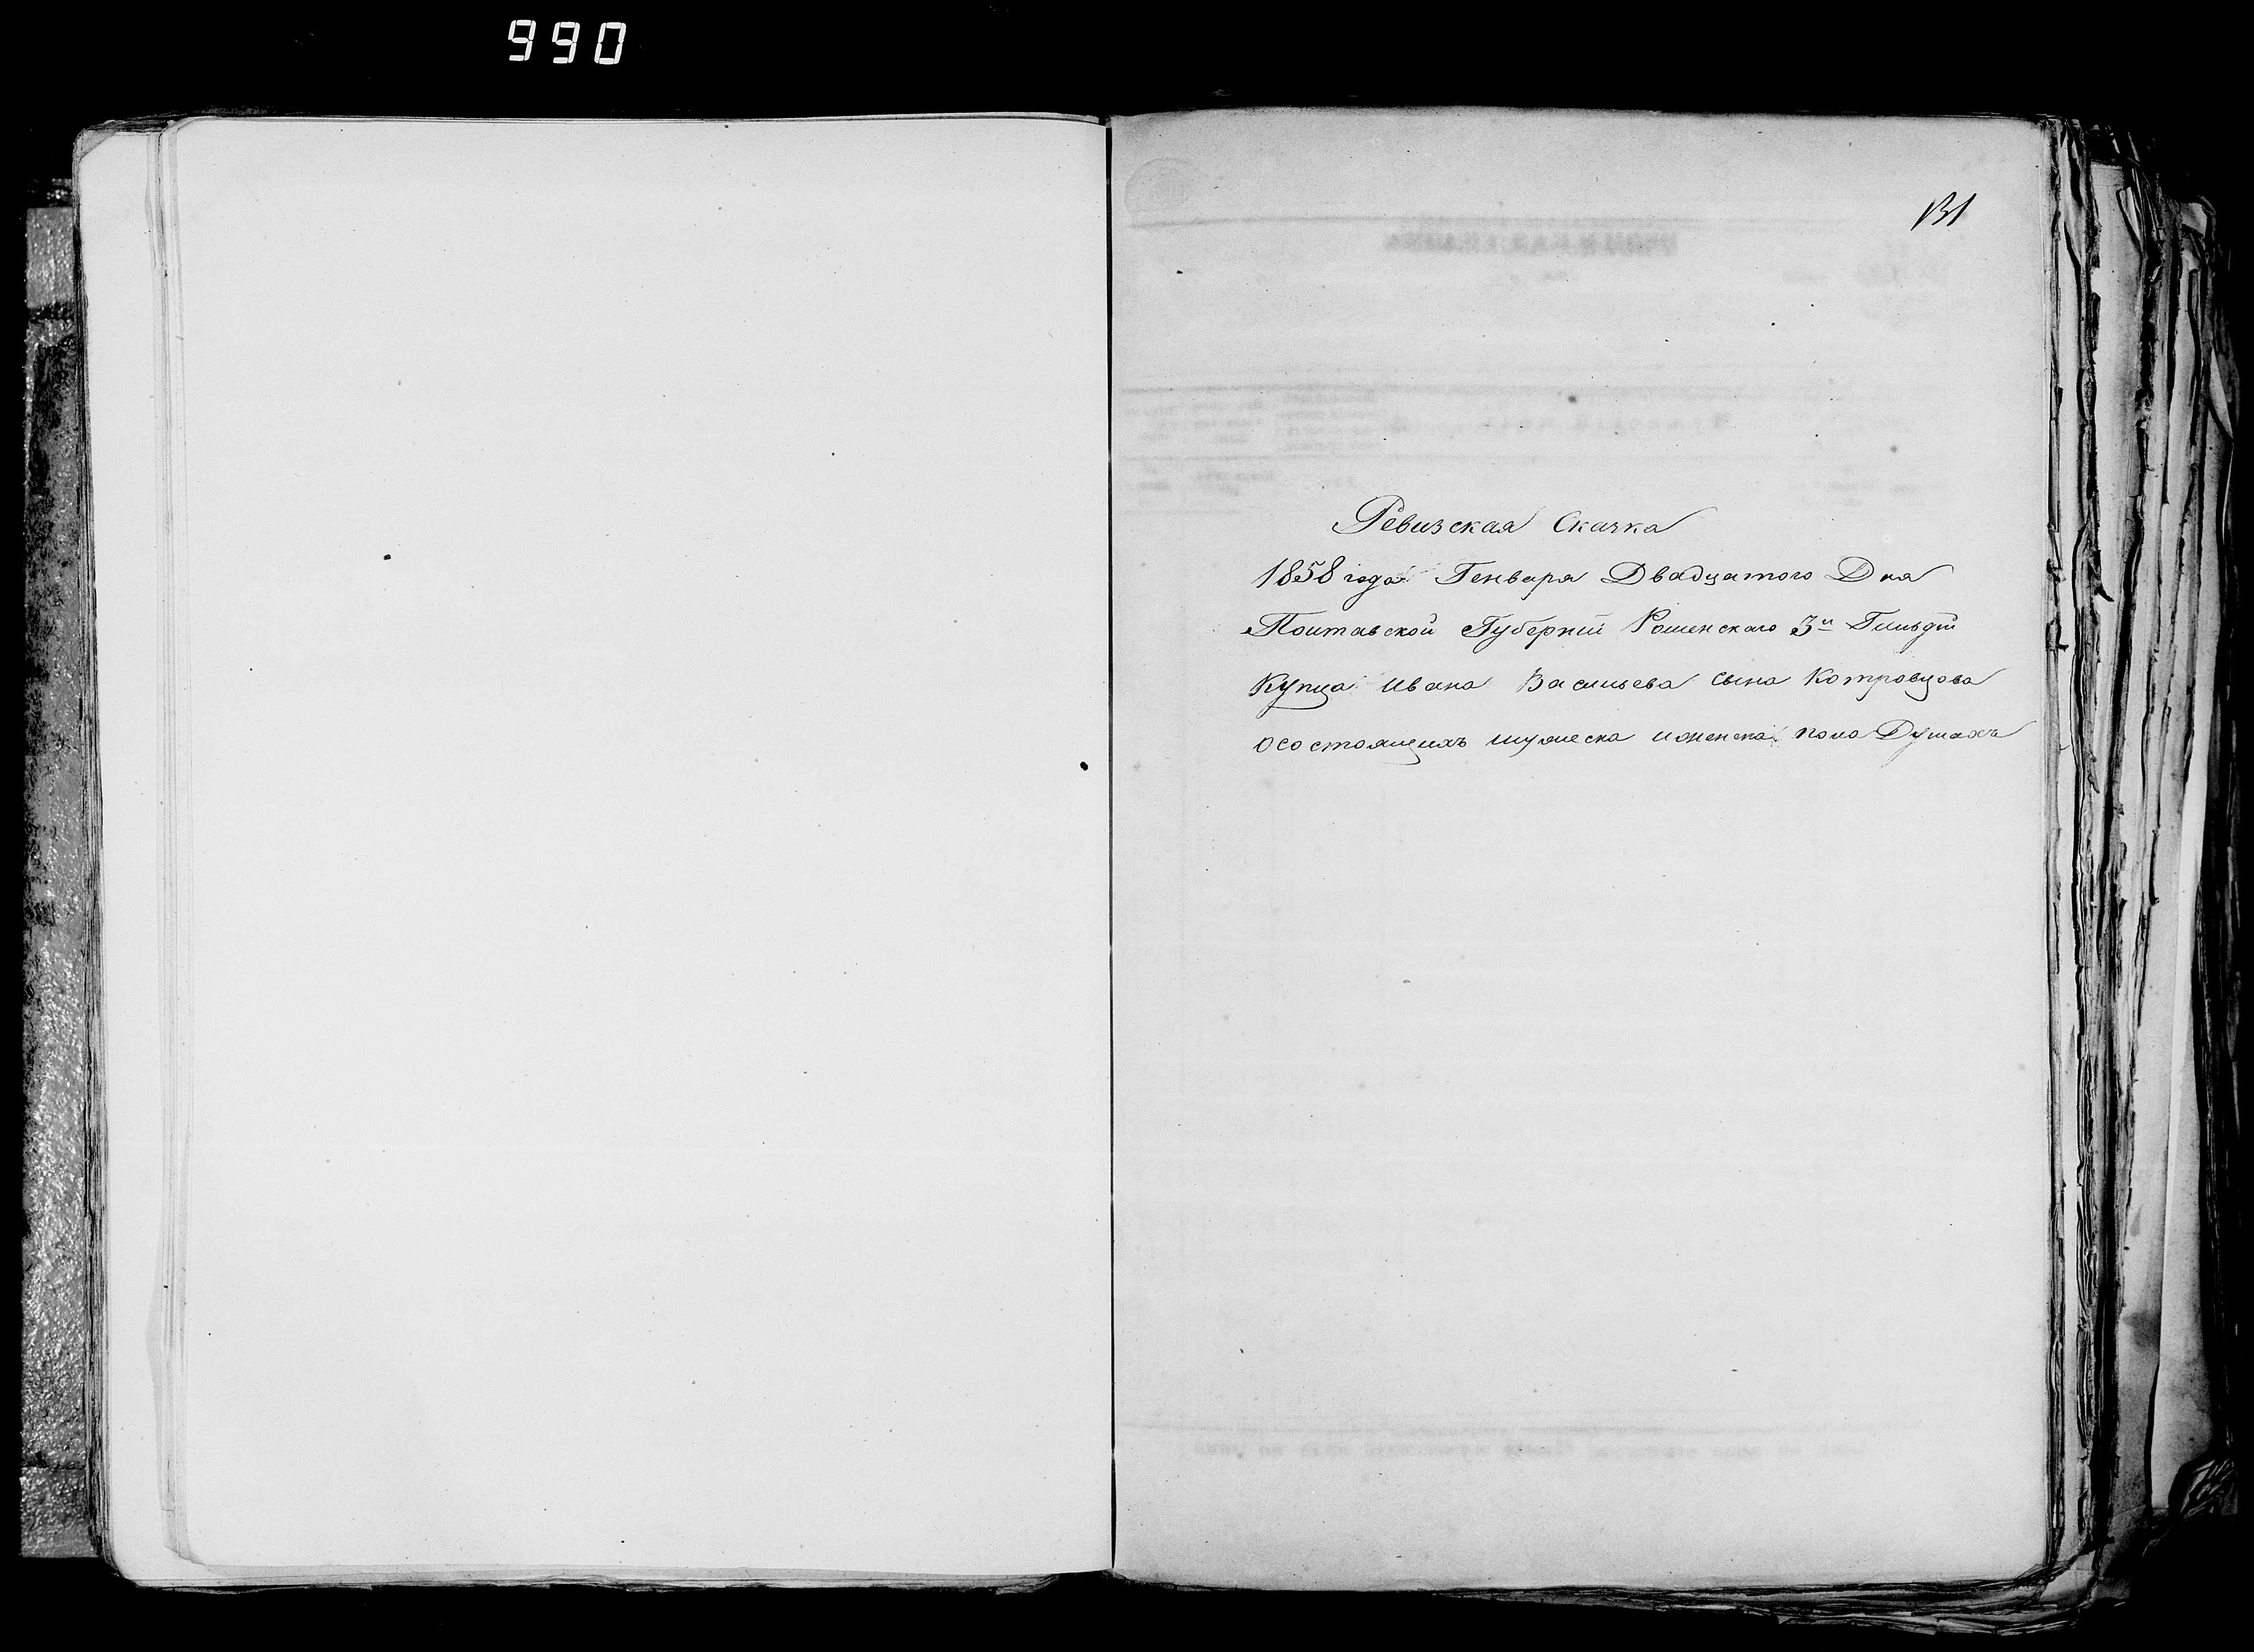 990
131
Ревизская Сказка
1858 года Генваря Двадцатого Дня
Полтавской Губернiи Роменскаго 3й Гильдiи
Купца Ивана Васильева сына Котровцова
о состоящихъ мужеска и женска пола Душахъ